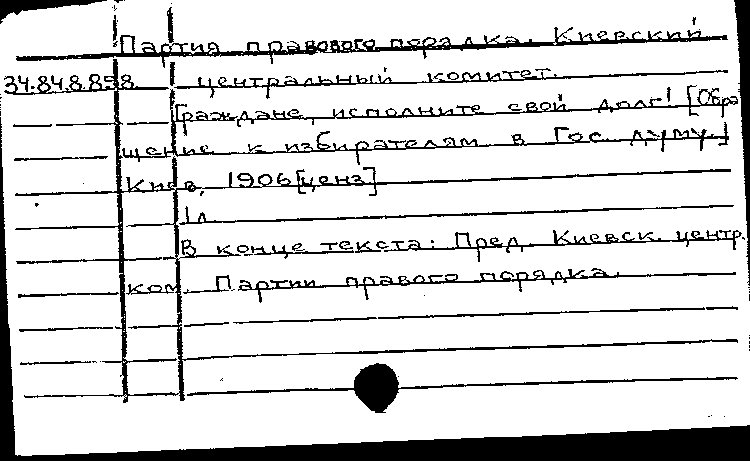 Партия правового порядка. Киевский
34.84.8.858 центральный комитет.
Граждане, исполните свой долг! [Обра
щение к избирателям в Гос. думу.]
Киев, 1906 [ценз]
1 л.
В конце текста: Пред. Киевск. центр.
ком. Партии правого порядка.